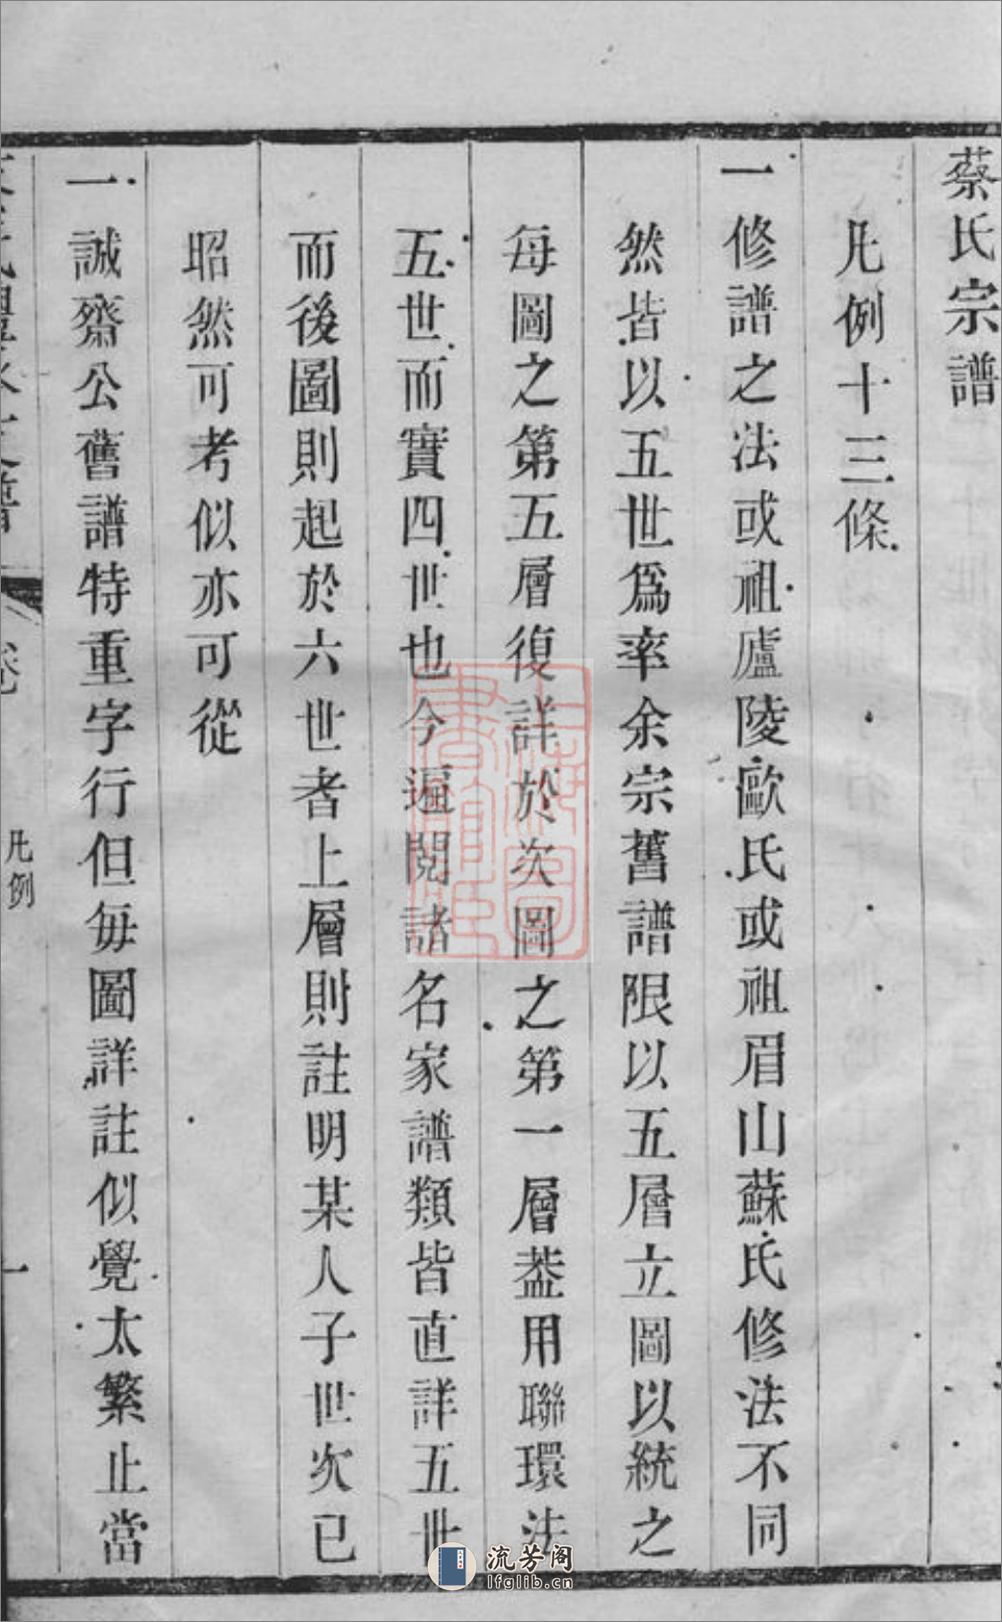 蔡氏宗譜
凡例十三條
一修譜之法或祖廬陵歐氏或祖眉山蘇氏修法不同
然皆以五世爲率余宗舊譜限以五層立圖以統之
每圖之第五層復詳於次圖之第一層葢用聯環法
五世而實四世也今遍閱諸名家譜類皆直詳五世
而後圖則起於六世者上層則註明某人子世次已
昭然可考似亦可從
一誠齋公舊譜特重字行但每圖詳註似覺太繁止當
卷
凡例
一
流芳阁
lfglib.cn